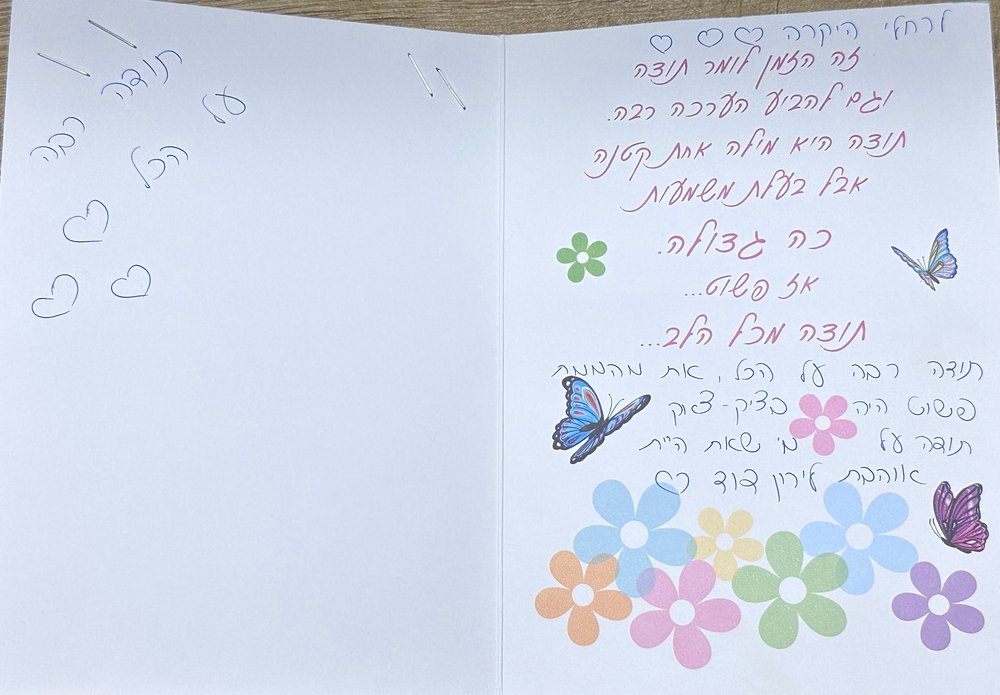 לרחלי היקרה
זה הזמן לומר תודה
וגם להביע הערכה רבה.
תודה היא מילה אחת קטנה
אבל בעלת משמעות
כה גדולה.
אז פשוט...
תודה מכל הלב...
תודה רבה על הכל, את מהממת
פשוט היה בציק-צוק
תודה על מי שאת היית
אוהבת לירון דוד
תודה
רבה
על
הכל